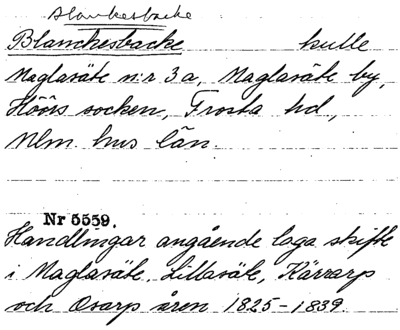 Blankesbacke
Blanchesbacke kulle
Maglasäte n:r 3 a, Maglasäte by,
Höörs socken, Frosta hd,
Mlm. hus län.
Nr 5559.
Handlingar angående laga skifte
i Maglasäte, Lillasäte, Kärrarp
och Osarp åren 1825-1839.